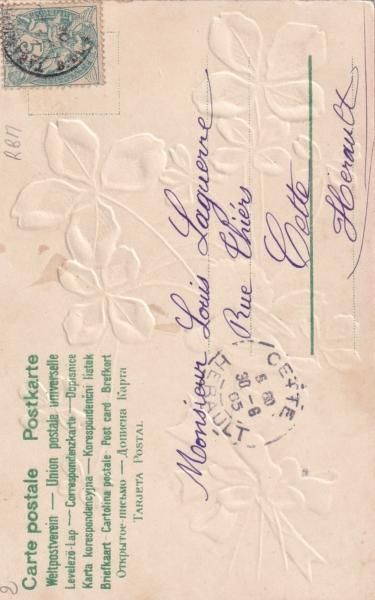 Carte postale   Postkarte
Weltpostverein — Union postale universelle
Levelező-Lap — Correspondenzkarte — Dopisnice
Karta korespondencyjna — Korespúndenční listek
Briefkaart — Cartolina postale — Post card — Brefkort
Открытое письмо — Дописна Карта
TARJETA POSTAL
Monsieur Louis Laguerre
Rue Thiers
Cette
Hérault
CETTE
HÉRAULT
RBM